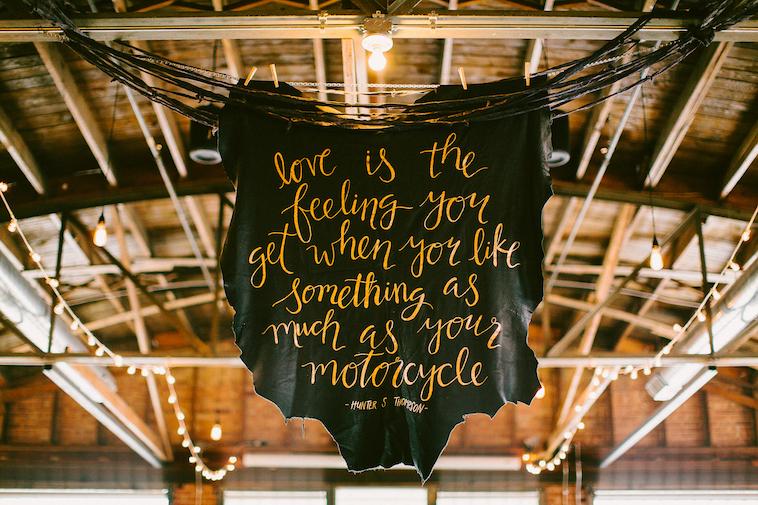 love is the
feeling you
get when you like
something as
much as your
motorcycle
- HUNTER S THOMPSON -